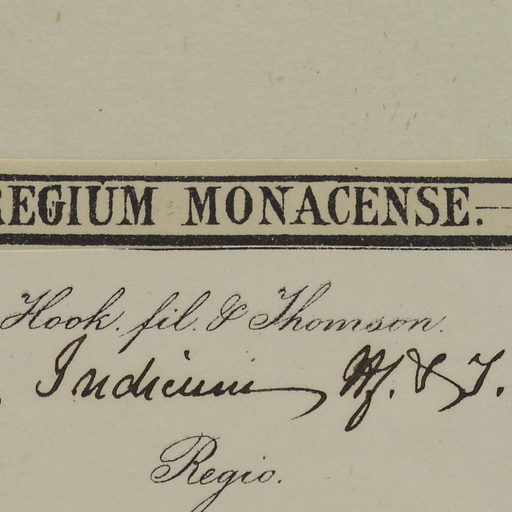 REGIUM MONACENSE.—
Hook. fil. & Thomson.
Indicum, Hf. & T.
Regio.